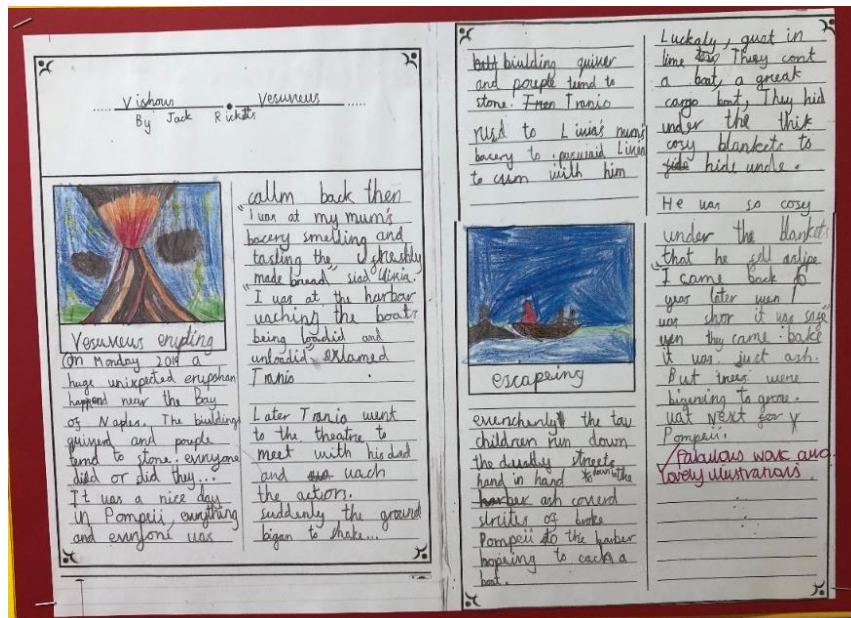 Vishous Vesuveus
By Jack Ricketts
Vesuveus erupting
On Monday 2019 a
huge unixpected erupshan
happend near the Bay
of Naples. The biuldings
quiverd and pouple
ternd to stone. evryone
did or did they...
It was a nice day
in Pompeii, evrything
and evryone was
callm back then
"I was at my mum's
bacery smelling and
tasting the freshly
made bread" siad Livia.
"I was at the harbor
waching the boats
being loadid and
unloadid" exlamed
Tranio
Later Tranio went
to the theatre to
meet with his dad
and wach
the actors.
suddenly the ground
bigan to shake...
biulding quiver
and pouple ternd to
stone. Tranio
rusd to Livia's mum's
bacery to Livia
to cum with him
escapeing
evenchenly the tow
children run down
the streets
hand in hand to the
ash coverd
strites of broke
Pompeii to the harber
hopeing to cach a
boat.
Luckaly, gust in
time They
a boat, a greak
cargo boat, They hid
under the thik
cosy blankets to
hide unde.
He was so cosy
under the blankets
that he fell aslipe
"I came back
yeas later wen I
was shor it was safe"
wen they came bake
it was just ash.
But trees were
bigening to grone.
wat Next for
Pompeii.
Fabulous work and
lovely illustrations.